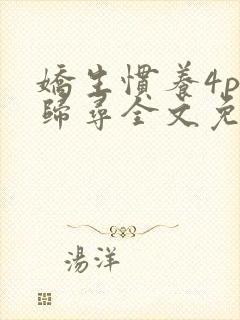 嬌生慣養4p
歸尋全文免
湯洋